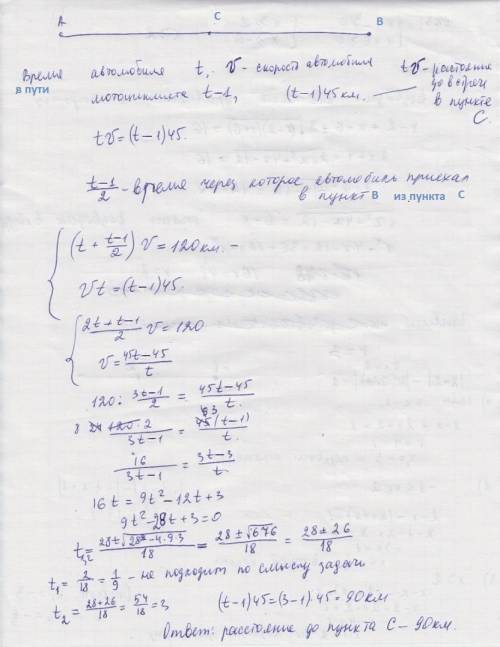 A C B
Время автомобиля t, v - скорость автомобиля tv - расстояние
в пути мотоциклиста t-1, (t-1)45 км. до встречи
в пункте
C.
tv = (t-1)45.
t-1/2 - время через которое автомобиль приехал
в пункт В из пункта С
(t + t-1/2) v = 120 км. -
vt = (t-1)45.
2t+t-1/2 v = 120
v = 45t-45/t
120 : 3t-1/2 = 45t-45/t.
8 24 120·2/3t-1 = 3 45(t-1)/t.
16/3t-1 = 3t-3/t
16t = 9t² - 12t + 3
9t² - 28t + 3 = 0
t1,2 = 28±√28²-4·9·3/18 = 28±√676/18 = 28±26/18
t1 = 2/18 = 1/9 - не подходит по смыслу задачи
t2 = 28+26/18 = 54/18 = 3 (t-1)45 = (3-1)·45 = 90 км
Ответ: расстояние до пункта С - 90 км.